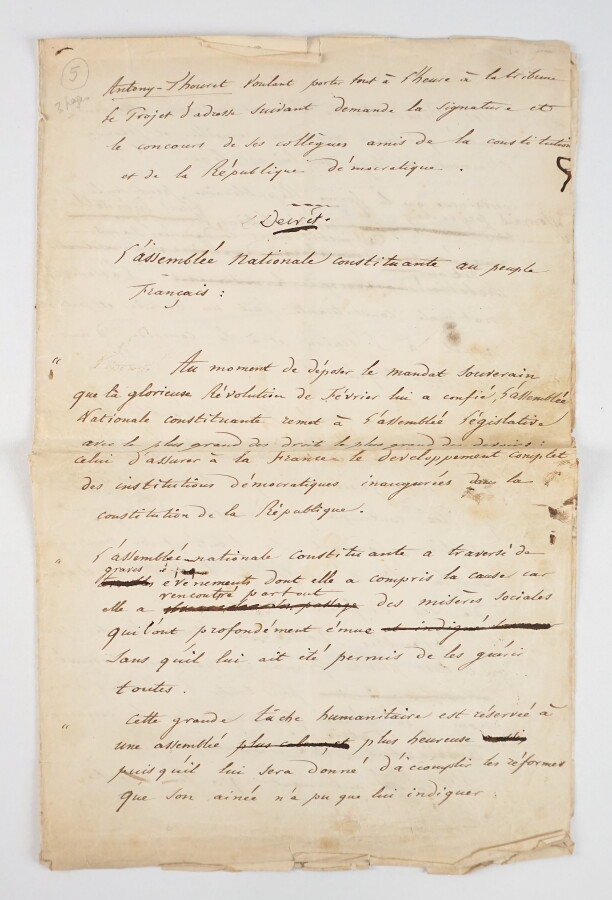 5
3 pages
Antony-Thouret voulant porter tout à l'heure à la tribune
le Projet d'adresse suivant demande la signature et
le concours de ses collègues amis de la constitution
et de la République démocratique.
Décret.
L'assemblée Nationale constituante au peuple
Français :
" Au moment de déposer le mandat souverain
que la glorieuse Révolution de Février lui a confié, L'assemblée
Nationale constituante remet à L'assemblée Législative
avec le plus grand des droits le plus grand des devoirs :
celui d'assurer à la France le developpement complet
des institutions démocratiques inaugurées dans la
constitution de la République.
" L'assemblée nationale constituante a traversé de
graves
évènements dont elle a compris la cause car
rencontré partout
elle a des misères sociales
qui l'ont profondément émue et indigné
sans qu'il lui ait été permis de les guérir
toutes.
" Cette grande tâche humanitaire est réservée à
une assemblée plus calme, et plus heureuse
puisqu'il lui sera donné d'accomplir les réformes
que son ainée n'a pu que lui indiquer.